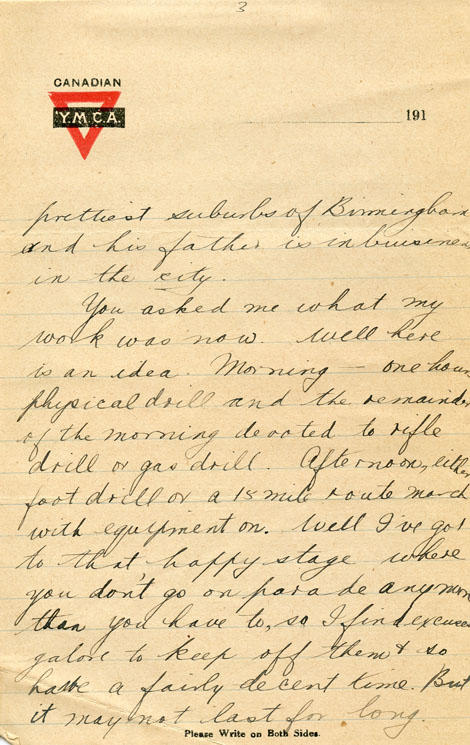 3
CANADIAN
Y.M.C.A.
191
prettiest suburbs of Birmingham
and his father is in buisiness
in the city.
You asked me what my
work was now. Well here
is an idea. Morning — one hour
physical drill and the remainder
of the morning devoted to rifle
drill or gas drill. Afternoon, either
foot drill or a 15 mile route march
with equipment on. Well I've got
to that happy stage where
you don't go on parade anymore
than you have to, so I find excuses
galore to keep off them & so
have a fairly decent time. But
it may not last for long.
Please Write on Both Sides.